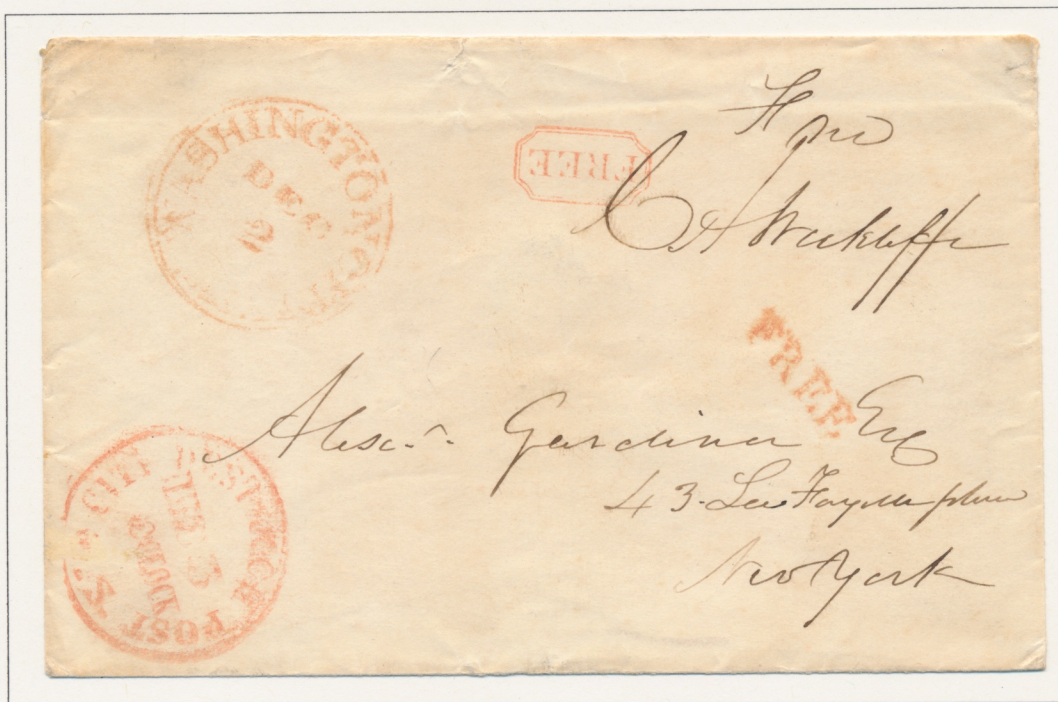 WASHINGTON CITY
DEC
2
FREE
Free
C A Wickliffe
FREE
Alexr. Gardiner Esq
43 La Fayette place
New York
U.S. CITY DESPATCH POST
DEC 3
HOUR